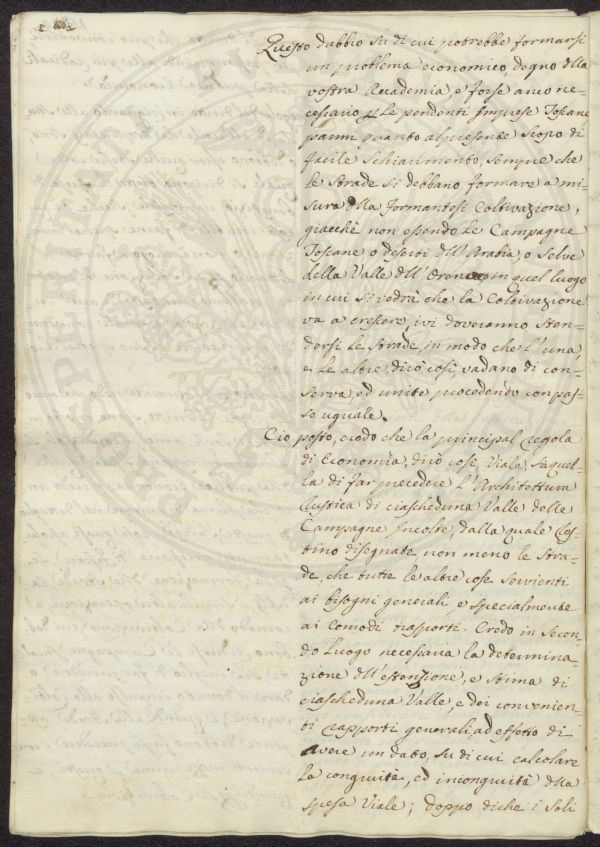 Questo dubbio su di cui potrebbe formarsi
un problema economico, degno dlla
vostra Accademia, e forse anco ne-
cessario p le pendenti Imprese Toscane
parmi quanto al presente scopo di
facile schiarimento, sempre che
le strade si debbano formare a mi-
sura dlla formantesi Coltivazione,
giacchè non essendo le Campagne
Toscane o deserti dll'Arabia, o selve
della Valle dll' in quel luogo
in cui si vedrà che la Coltivazione
va a crescere, ivi doveranno sten-
dersi le strade, in modo che l'una,
e le altre, dirò così, vadano di con-
serva, ed unite procedendo con pas-
so uguale.
Ciò posto, credo che la principal regola
di Economia, dirò così, Viale, sia quel-
la di far precedere l'Architettura
rustica di ciascheduna Valle delle
Campagne Incolte, dalla quale ros-
tino disegnate non meno le stra-
de, che tutte le altre cose servienti
ai bisogni generali, e specialmente
ai comodi trasporti. Credo in secon-
do luogo necessaria la determina-
zione dll'estenzione, e stima di
ciascheduna Valle, e dei convenien-
ti rapporti generali, ad effetto di
avere un dato, su di cui calcolare
la congruità, ed incongruità dlla
spesa Viale; doppo di che i soli